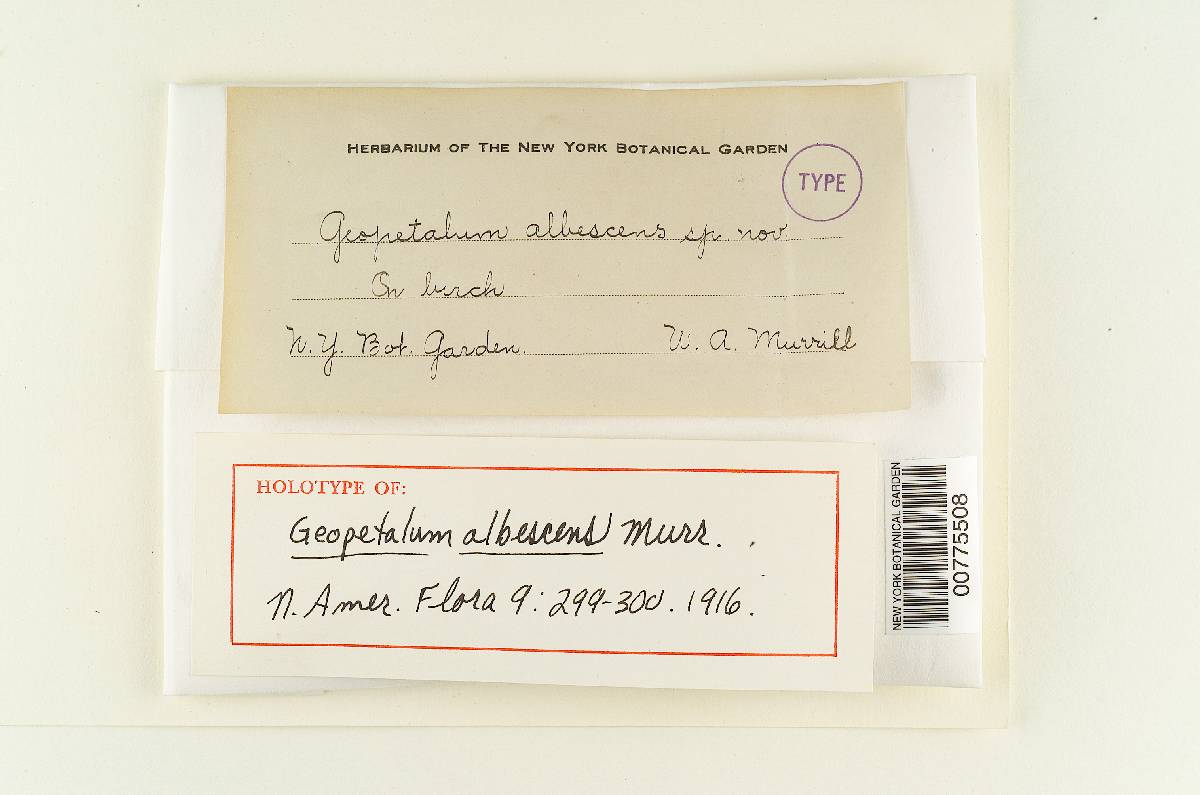 HERBARIUM OF THE NEW YORK BOTANICAL GARDEN
TYPE
Geopetalum albescens sp. nov.
On birch
N. Y. Bot. Garden. W. A. Murrill
HOLOTYPE OF:
Geopetalum albescens Murr.
N. Amer. Flora 9: 299-300. 1916.
NEW YORK BOTANICAL GARDEN
00775508